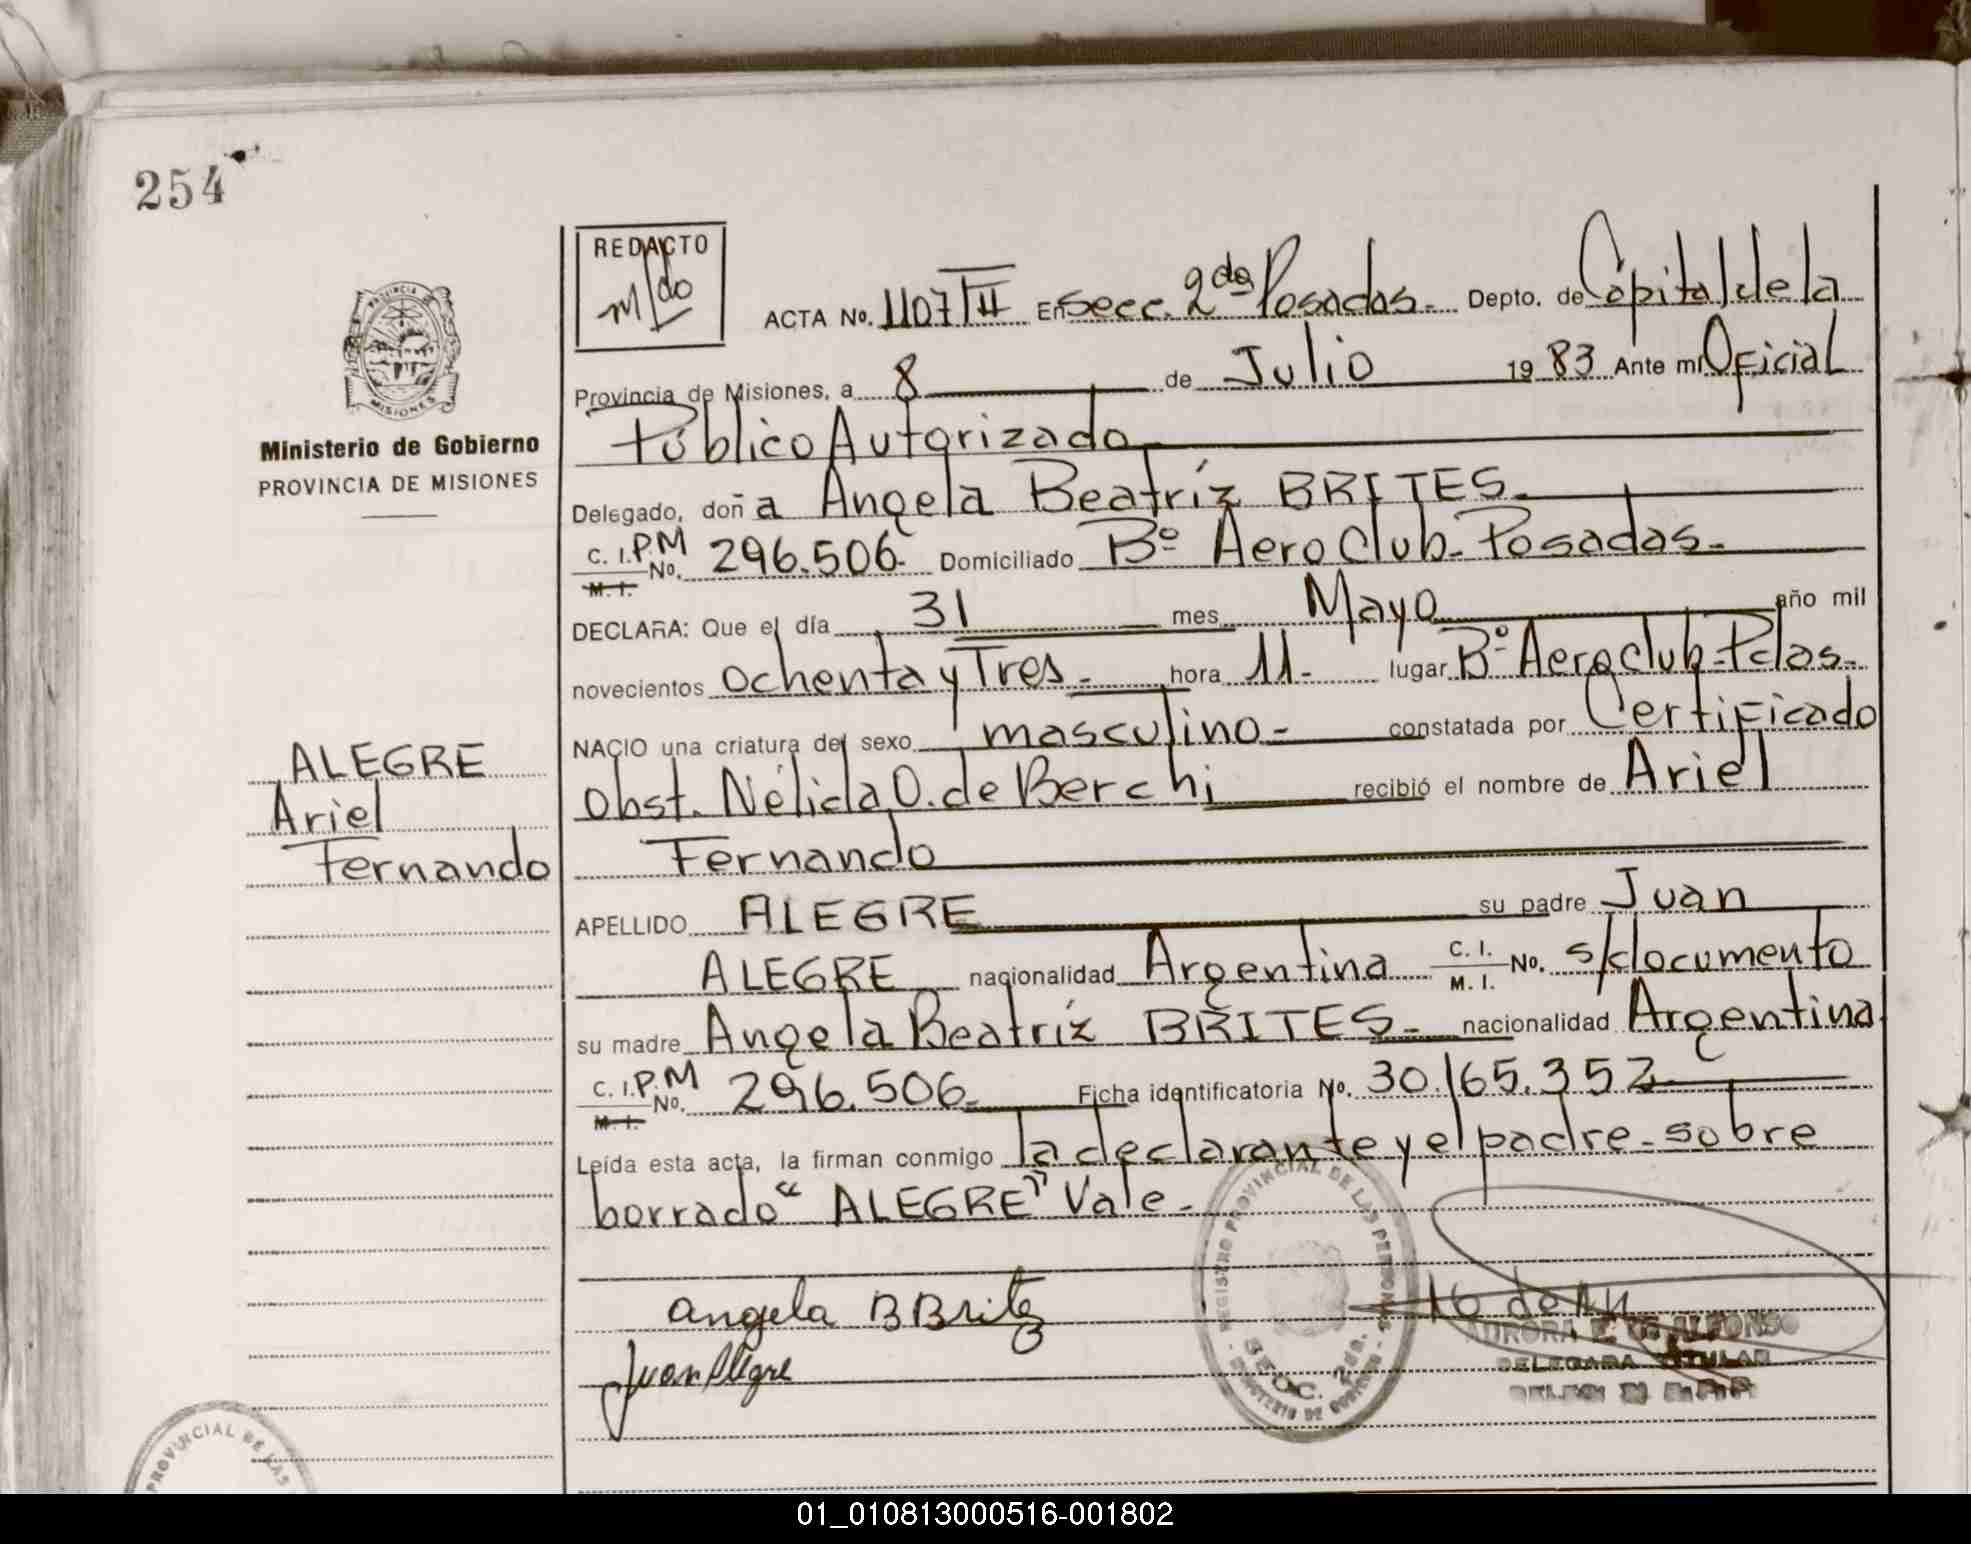 254
REDACTO
PROVINCIA DE
MISIONES
Ministerio de Gobierno
PROVINCIA DE MISIONES
ALEGRE
Ariel
Fernando
ACTA No. 1107 TII En Secc. 2da Posadas.- Depto. de Capital de la
Provincia de Misiones, a 8 de Julio 19 83 Ante mí Oficial
Público Autorizado
Delegado, doña Angela Beatríz BRITES.
C. I. P.M No. 296.506.- Domiciliado Bº Aero Club.- Posadas.-
M. I.
DECLARA: Que el día 31 mes Mayo año mil
novecientos ochenta y Tres.- hora 11.- lugar Bº Aeroclub-Pdas.-
NACIO una criatura del sexo masculino.- constatada por Certificado
Obst. Nélida O. de Berchi recibió el nombre de Ariel
Fernando
APELLIDO ALEGRE su padre Juan
ALEGRE nacionalidad Argentina C. I. No. s/documento
M. I.
su madre Angela Beatríz BRITES.- nacionalidad Argentina
C. I. P.M No. 296.506.- Ficha identificatoria No. 30.165.352
M. I.
Leída esta acta, la firman conmigo la declarante y el padre - sobre
borrado "ALEGRE" Vale.-
Angela B Britez
Juan Alegre
REGISTRO PROVINCIAL DE LAS PERSONAS
SECC. 2DA.
MINISTERIO DE GOBIERNO
ALFONSO
DELEGADA TITULAR
PROVINCIAL DE LAS
01_010813000516-001802